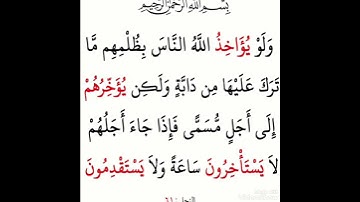 بِسْمِ اللَّهِ الرَّحْمَٰنِ الرَّحِيمِ
وَلَوْ يُؤَاخِذُ اللَّهُ النَّاسَ بِظُلْمِهِم مَّا
تَرَكَ عَلَيْهَا مِن دَابَّةٍ وَلَكِن يُؤَخِّرُهُمْ
إِلَى أَجَلٍ مُّسَمًّى فَإِذَا جَاءَ أَجَلُهُمْ
لاَ يَسْتَأْخِرُونَ سَاعَةً وَلاَ يَسْتَقْدِمُونَ
النحل: ٦١